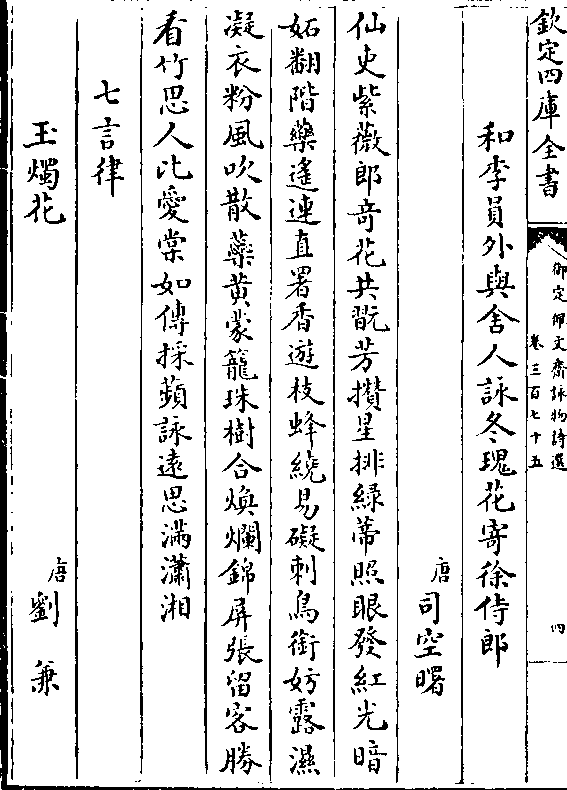 欽定四庫全書
御定佩文齋詠物詩選
卷三百七十五
四
和李員外與舍人詠冬瑰花寄徐侍郎
唐 司空曙
仙吏紫薇郎竒花共翫芳攢星排綠蒂照眼發紅光暗
妬翻階藥遙連直署香遊枝蜂繞易礙刺鳥銜妨露濕
凝衣粉風吹散蘂黄蒙籠珠樹合煥爛錦屏張留客勝
看竹思人比愛棠如傳採蘋詠遠思滿瀟湘
七言律
玉燭花
唐 劉兼